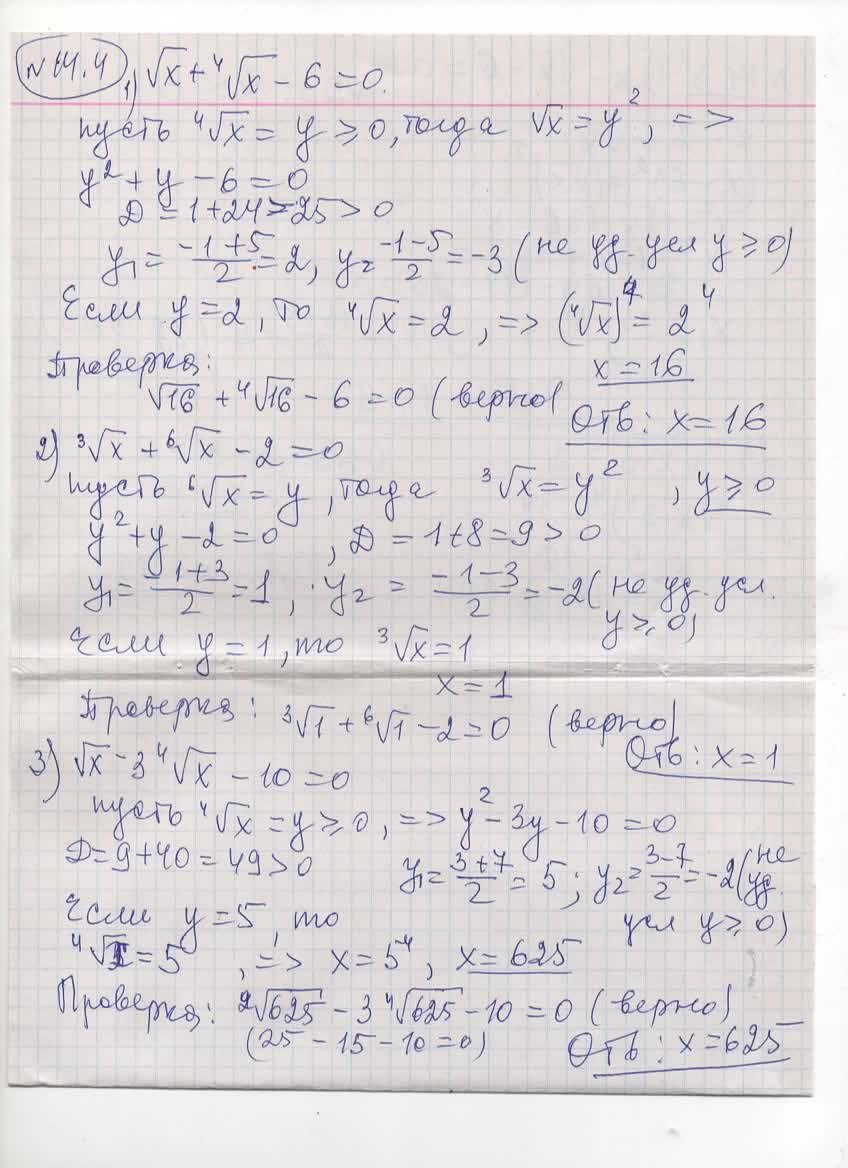 N 14.4
1) √x + ⁴√x - 6 = 0.
пусть ⁴√x = y ≥ 0, тогда √x = y², =>
y² + y - 6 = 0
Д = 1 + 24 = 25 > 0
y₁ = (-1+5)/2 = 2, y₂ = (-1-5)/2 = -3 (не уд. усл y ≥ 0)
Если y = 2, то ⁴√x = 2, => (⁴√x)⁴ = 2⁴
x = 16
Проверка:
√16 + ⁴√16 - 6 = 0 (верно)
Отв: x = 16
2) ³√x + ⁶√x - 2 = 0
пусть ⁶√x = y, тогда ³√x = y², y ≥ 0
y² + y - 2 = 0, Д = 1 + 8 = 9 > 0
y₁ = (-1+3)/2 = 1, y₂ = (-1-3)/2 = -2 (не уд. усл.
y ≥ 0)
Если y = 1, то ³√x = 1
x = 1
Проверка: ³√1 + ⁶√1 - 2 = 0 (верно)
Отв: x = 1
3) √x - 3 ⁴√x - 10 = 0
пусть ⁴√x = y ≥ 0, => y² - 3y - 10 = 0
Д = 9 + 40 = 49 > 0 y₁ = (3+7)/2 = 5; y₂ = (3-7)/2 = -2 (не уд.
Если y = 5, то усл y ≥ 0)
⁴√x = 5, => x = 5⁴, x = 625
Проверка: ²√625 - 3 ⁴√625 - 10 = 0 (верно)
(25 - 15 - 10 = 0) Отв: x = 625